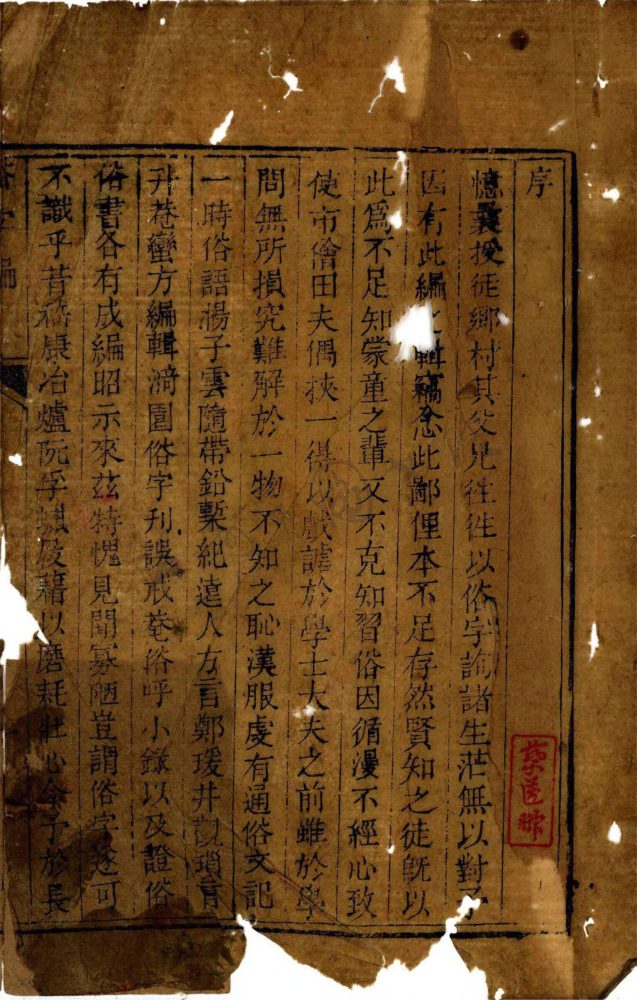 序
憶曩授徒鄉村其父兄徃徃以俗字詭諸生茫無以對予
因有此編之輯竊念此鄙俚本不足存然賢知之徒旣以
此爲不足知蒙童之輩又不克知習俗因循漫不經心致
使市儈田夫偶挾一得以戲謔於學士大夫之前雖於學
問無所損究難解於一物不知之恥漢服虔有通俗文記
一時俗語揚子雲隨帶鉛槧紀遠人方言鄭瑗井觀瑣言
升菴蠻方編輯漪園俗字刋誤戒菴俗呼小錄以及證俗
俗書各有成編昭示來茲特愧見聞寡陋豈謂俗字遂可
不識乎昔嵇康冶爐阮孚蠟屐藉以磨耗壯心今予於長